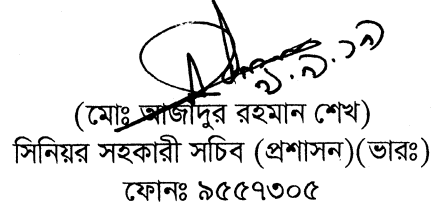 ৯.৯.১৯
(মোঃ আজীদুর রহমান শেখ)
সিনিয়র সহকারী সচিব (প্রশাসন)(ভারঃ)
ফোনঃ ৯৫৫৭৩০৫